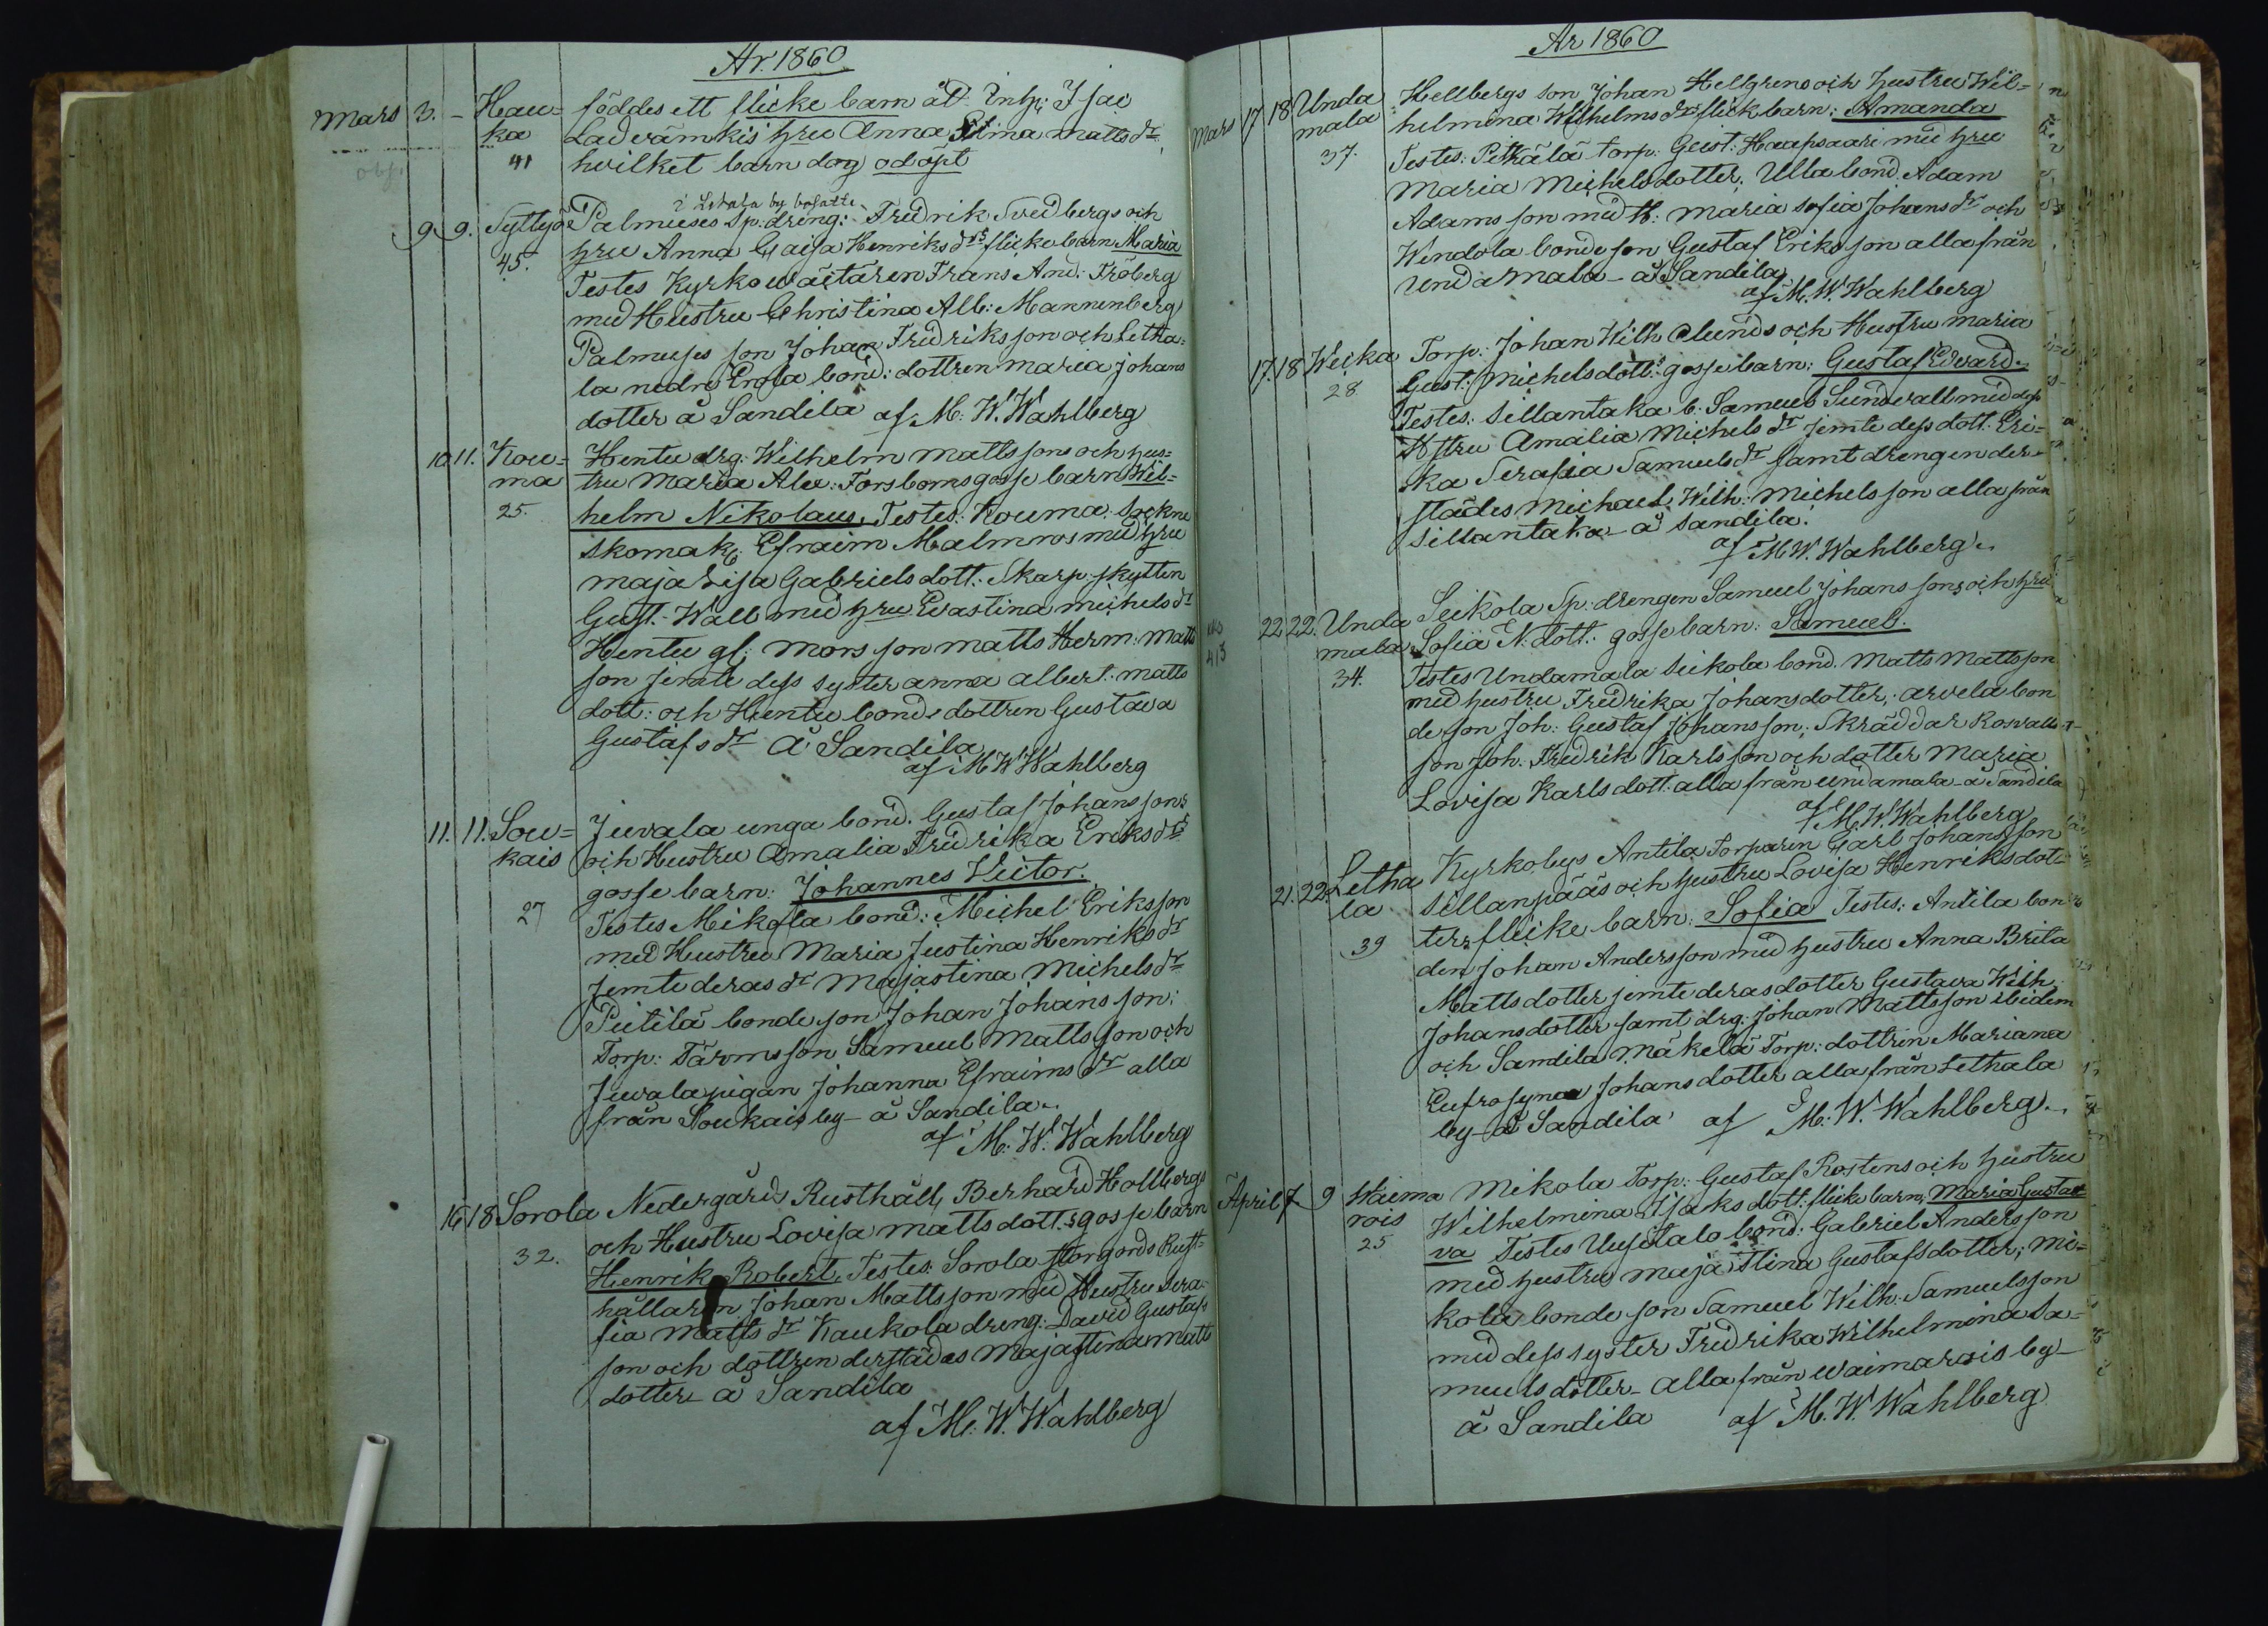 År. 1860
Mars 3. - Hau= föddes ett flicke barn åt Inh: Isac
ka Ladvämkis hru Anna Stina Matts dr
41 hvilket barn dog odöpt
obs.
i Letala by bosatte
9 9. Syttyö Palmuses Sp. dreng: Fredrik Svedbergs och
45. hru Anna Caisa Henriks drs flicke barn Maria
Testes Kyrkowäctaren Frans And: Fröberg
med Hustru Christina Alb: Mannenberg
Palmuses son Johan Fredriksson och Letha=
la nedre Erola bond: dottren Maria Johans
dotter å Sandila af M: W. Wahlberg
10 11. Kou= Hentu drg: Wilhelm Matts sons och hus=
ma tru Maria Alex: Forsboms gosse barn Wil=
25. helm Nikolaus, Testes: Kouma Sockne
skomak: Efraim Malmros med hru
Maja Lisa Gabriels dott. Skarp: skytten
Gust. Wall med hru Evastina Michels dr
Hentu gl: mors son Matts Herm: Matts
son jemte dess syster Anna Albert: Matts
dott: och Hentu bonde dottren Gustava
Gustafs dr å Sandila
af M W Wahlberg
11. 11. Sou= Juvala unga bond. Gustaf Johans sons
kais och Hustru Amalia Fredrika Eriks drs
gosse barn: Johannes Victor.
27 Testes Mikola bond: Michel Eriksson
med Hustru Maria Justina Henriks dr
jemte deras dr Majastina Michels dr
Pietilä bonde son Johan Johans son;
Torp: Tärms son Samuel Matts son och
Juvala pigan Johanna Efraims dr alla
från Soukais by å Sandila.
af M: W: Wahlberg
16 18 Sorola Nedergårds Rusthåll: Berhard Hollbergs
och Hustru Lovisa Matts dott:s gosse barn
32. Henrik Robert, Testes: Sorola storgårds Rust=
hållaren Johan Mattsson med Hustru Sera=
fia Matts dr Kaukola dreng: David Gustafs
son och dottren derstädes Majastina Matts
dotter å Sandila
af M: W. Wahlberg
År 1860
Mars 17 18 Unda Hellbergs son Johan Hellgrens och Hustru Wil=
mala helmina Wilhelms drs flickbarn: Amanda
37. Testes: Pitkälä torp: Gust: Haapsaari med hru
Maria Michelsdotter. Ulla bond. Adam
Adams son med H: Maria Sofia Johans dr och
Wendola bondeson Gustaf Eriksson alla från
Undamala å Sandila
af M. W. Wahlberg
17. 18 Weika Torp: Johan Wilh Clunds och Hustru Maria
28 Gust: Michelsdott:s gossebarn: Gustaf Edvard.
Testes: Sillantaka b. Samuel Sundvall med dess
Hstru Amalia Michels dr jemte dess dott. Eri=
ka Serafia Samuels dr samt drengen der=
städes Michael Wilh: Michelsson alla från
Sillantaka å Sandila.
af M W. Wahlberg.
22 22. Unda Seikola Sp: drengen Samuel Johans sons och hru
mala Sofia N. dott: gossebarn: Samuel.
34. Testes Undamala Seikola bond. Matts Mattsson
med hustru Fredrika Johansdotter, Arvela bon
de son Joh: Gustaf Johansson, Skräddar Rosvalls
son Joh: Fredrik Karlsson och dotter Maria
Lovisa Karlsdott. alla från Undamala å Sandila
af M. W. Wahlberg
21. 22. Letha Kyrkobys Antila Torparen Carl Johansson
la Sillanpääs och hustru Lovisa Henriksdot=
39 ters flicke barn: Sofia Testes: Antila bon
den Johan Andersson med hustru Anna Brita
Mattsdotter jemte deras dotter Gustava Wilh.
Johansdotter samt drg: Johan Mattsson ibidem
och Sandila Mäkelä Torp: dottren Mariana
Eufrosyna Johansdotter alla från Lethala
by å Sandila af M. W. Wahlberg.
April 7. 9 Waima Mikola Torp: Gustaf Rostens och Hustru
rois Wilhelmina Isaks dott:s flicke barn, Maria Gusta
25 va Testes Uusitalo bond: Gabriel Andersson
med hustru Maja Stina Gustafsdotter; Mi=
kola bonde son Samuel Wilh. Samuelsson
med dess syster Fredrika Wilhelmina Sa=
muelsdotter alla från Waimarois by
å Sandila af M. W. Wahlberg